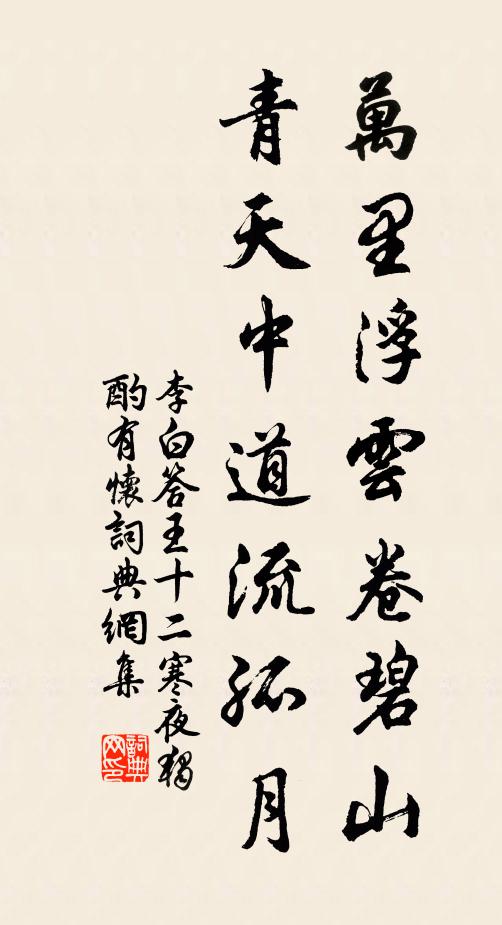 萬里浮雲卷碧山
青天中道流孤月
李白答王十二寒夜獨
酌有懷詞典網集
詞典
网印